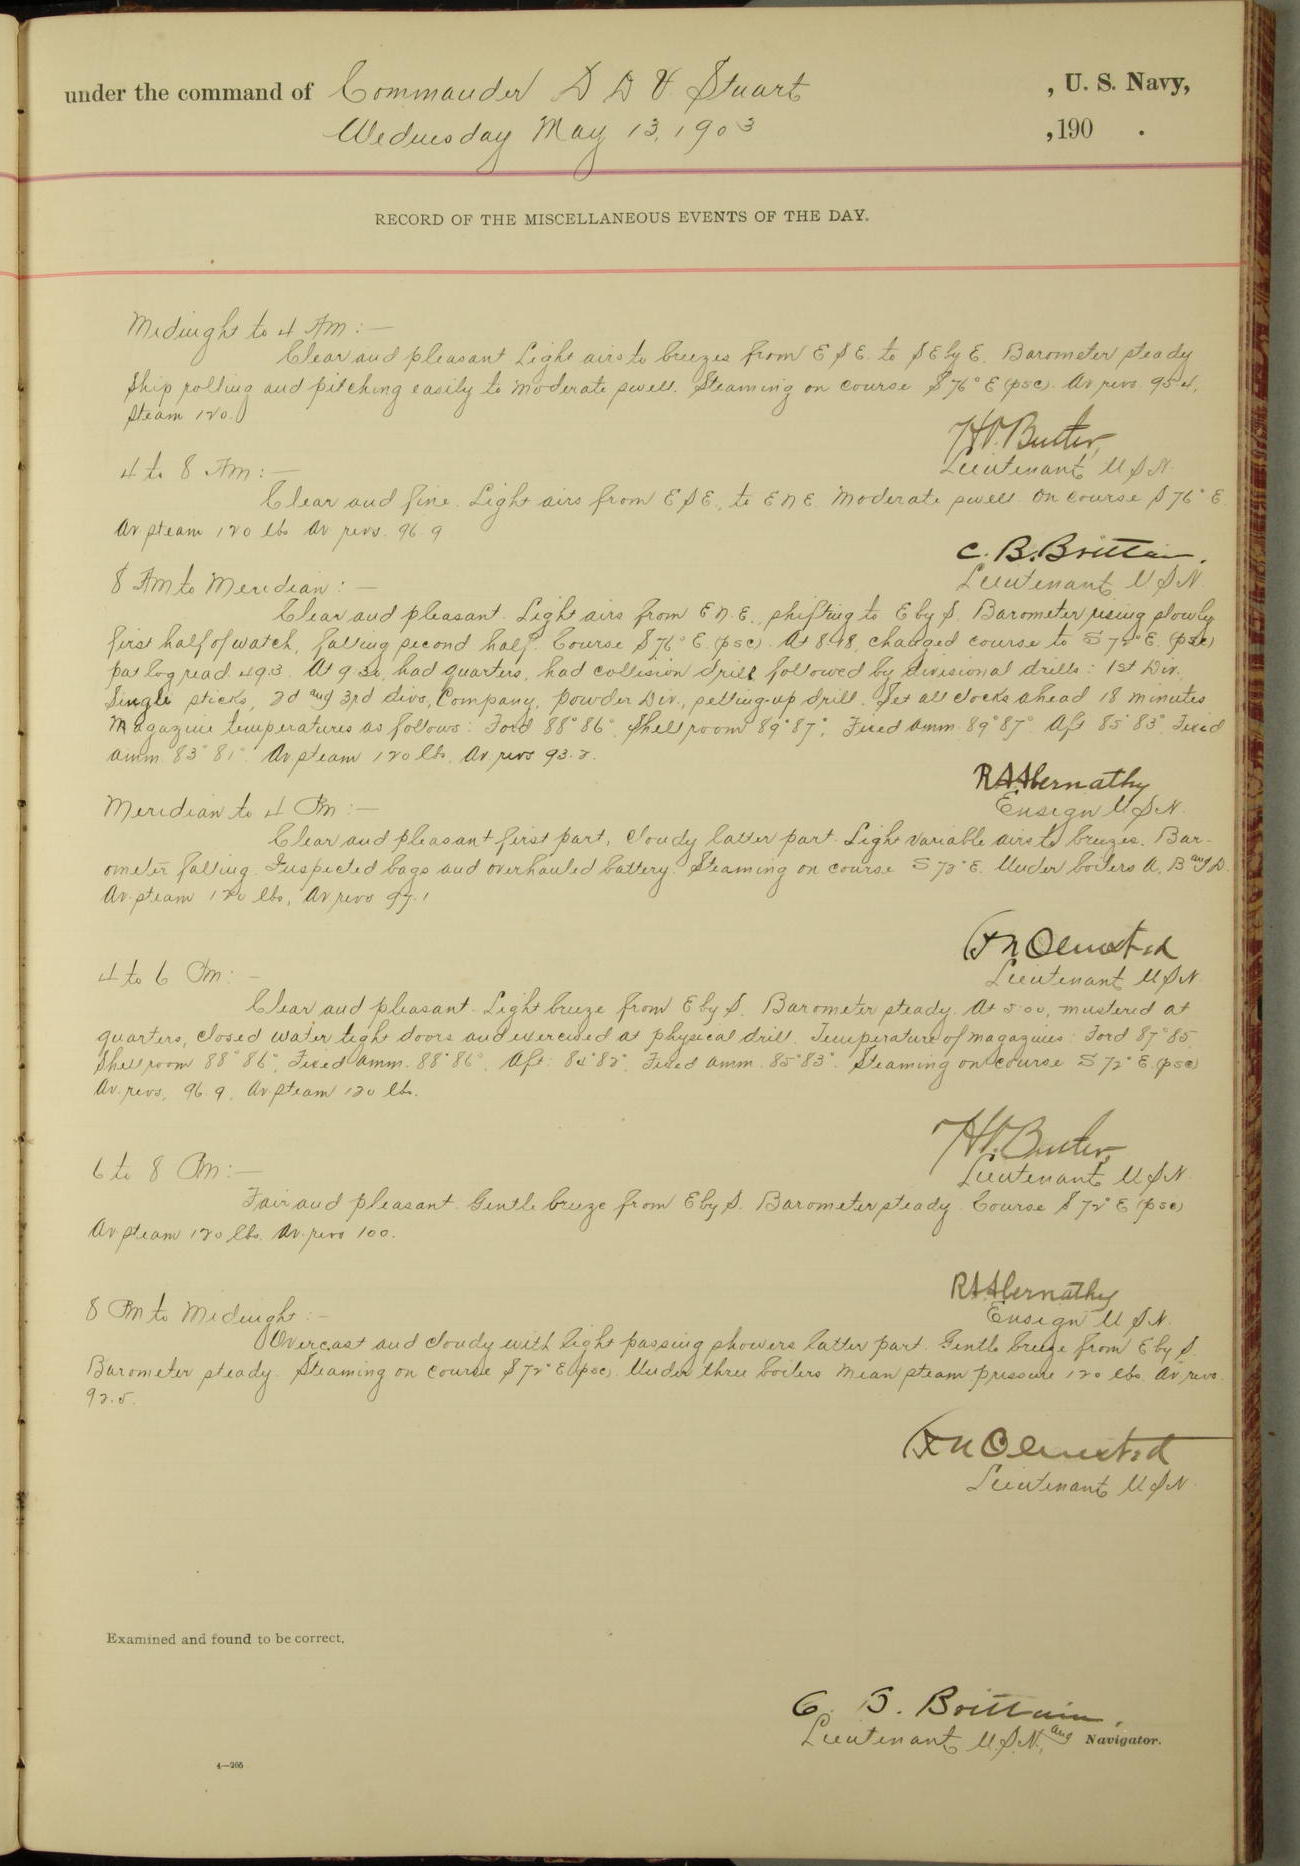 under the command of Commander D D V Stuart , U. S. Navy,
Wednesday May 13, 1903 , 190 .
RECORD OF THE MISCELLANEOUS EVENTS OF THE DAY.
Midnight to 4 Am:—
Clear and pleasant Light airs to breezes from E S E. to S E by E. Barometer steady
Ship rolling and pitching easily to moderate swell. Steaming on course S 76° E (psc). Av revs. 95.4.
Steam 120.
Lieutenant U S N.
4 to 8 Am:—
Clear and fine. Light airs from E S E., to E N E. Moderate swell. On course S 76° E.
Av steam 120 lbs Av revs. 96.9
C. B. Brittain.
Lieutenant U S N.
8 Am to Meridian:—
Clear and pleasant. Light airs from E N. E., shifting to E by S. Barometer rising slowly
first half of watch, falling second half. Course S 76° E. (psc). At 8.48, changed course to S 72° E. (psc)
pat log read 49.3. At 9.30, had quarters, had collision drill followed by divisional drills: 1st Div.
Single sticks, 2d and 3rd divs, Company, Powder Div., setting-up drill. Set all clocks ahead 18 minutes
Magazine temperatures as follows: Ford 88° 86°, Shell room 89° 87°, Fixed amm. 89° 87°. Aft 85° 83°. Fixed
amm. 83° 81°. Av steam 120 lbs. Av revs 93.2.
R A Abernathy
Ensign U S N.
Meridian to 4 Pm:—
Clear and pleasant first part, cloudy latter part. Light variable airs to breezes. Bar-
ometer falling. Inspected bags and overhauled battery. Steaming on course S 72° E. Under boilers A, B and D.
Av. steam 120 lbs, Av revs 97.1
Olmsted
Lieutenant U S N.
4 to 6 Pm:—
Clear and pleasant. Light breeze from E by S. Barometer steady. At 5.00, mustered at
quarters, closed water tight doors and exercised at physical drill. Temperature of magazines: Ford 87° 85,
Shell room 88° 86°, Fixed amm. 88° 86°, Aft: 84° 82°. Fixed amm. 85° 83°. Steaming on course S 72° E. (psc)
Av. revs. 96.9. Av. steam 120 lbs.
Lieutenant U S N.
6 to 8 Pm:—
Fair and pleasant. Gentle breeze from E by S. Barometer steady. Course S 72° E (psc)
Av steam 120 lbs. Av. revs 100.
R A Abernathy
Ensign U S N.
8 Pm to Midnight:—
Overcast and cloudy with light passing showers latter part. Gentle breeze from E by S.
Barometer steady. Steaming on course S 72° E (psc). Under three boilers Mean steam pressure 120 lbs. Av revs.
92.5.
Olmsted
Lieutenant U S N.
Examined and found to be correct.
C. B. Brittain,
Lieutenant U. S. N., and Navigator.
4—205